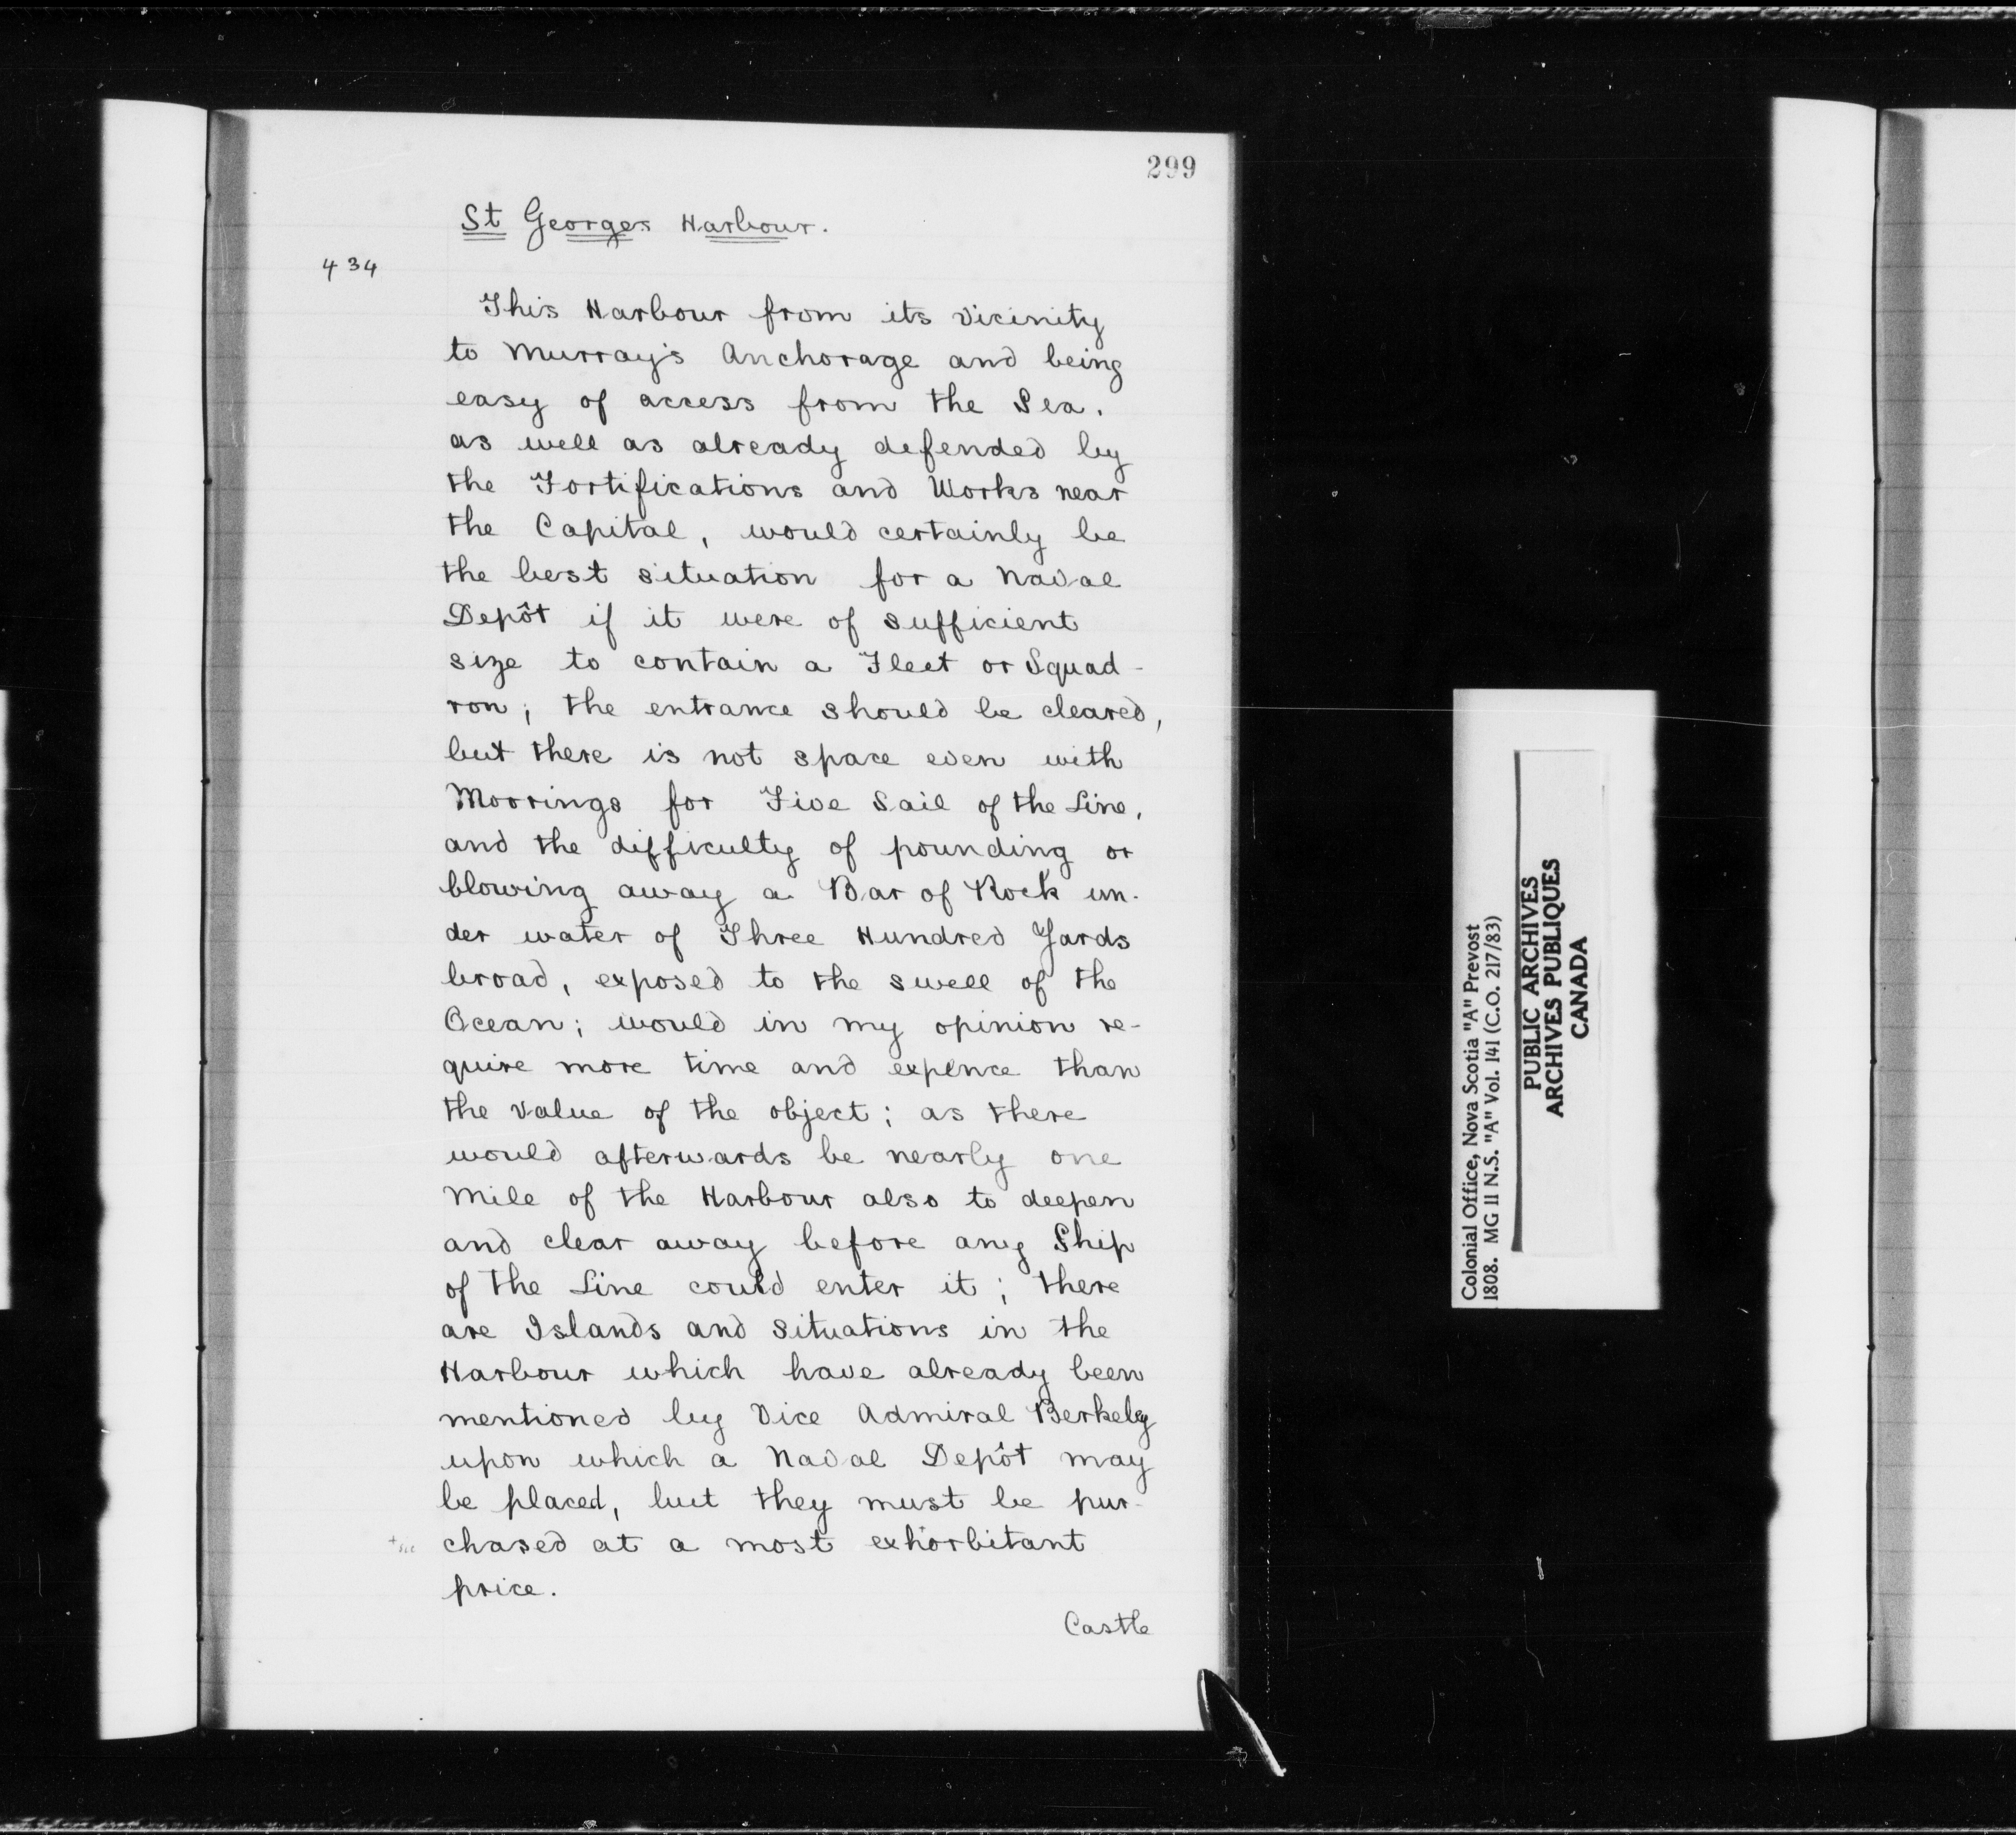 299
St Georges Harbour.
434
This Harbour from its vicinity
to Murray's Anchorage and being
easy of access from the Sea,
as well as already defended by
the Fortifications and Works near
the Capital, would certainly be
the best situation for a Naval
Depôt if it were of sufficient
size to contain a Fleet or Squad-
ron; the entrance should be cleared,
but there is not space even with
Moorings for Five Sail of the Line,
and the difficulty of pounding or
blowing away a Bar of Rock un-
der water of Three Hundred Yards
broad, exposed to the swell of the
Ocean; would in my opinion re-
quire more time and expence than
the value of the object; as there
would afterwards be nearly one
Mile of the Harbour also to deepen
and clear away before any Ship
of the Line could enter it; there
are Islands and situations in the
Harbour which have already been
mentioned by Vice Admiral Berkely
upon which a Naval Depôt may
be placed, but they must be pur-
chased at a most exhorbitant
price.
Castle
Colonial Office, Nova Scotia "A" Prevost
1808. MG 11 N.S. "A" Vol. 141 (C.O. 217/83)
PUBLIC ARCHIVES
ARCHIVES PUBLIQUES
CANADA